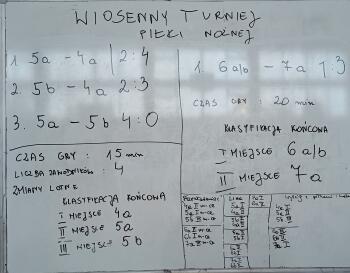 WIOSENNY TURNIEJ
PIŁKI NOŻNEJ
1. 5a - 4a 2:4
2. 5b - 4a 2:3
3. 5a - 5b 4:0
CZAS GRY: 15 min
LICZBA ZAWODNIKÓW: 4
ZMIANY LOTNE
KLASYFIKACJA KOŃCOWA
I MIEJSCE 4a
II MIEJSCE 5a
III MIEJSCE 5b
1. 6a/b - 7a 1:3
CZAS GRY: 20 min
KLASYFIKACJA KOŃCOWA
I MIEJSCE 6a/b
II MIEJSCE 7a